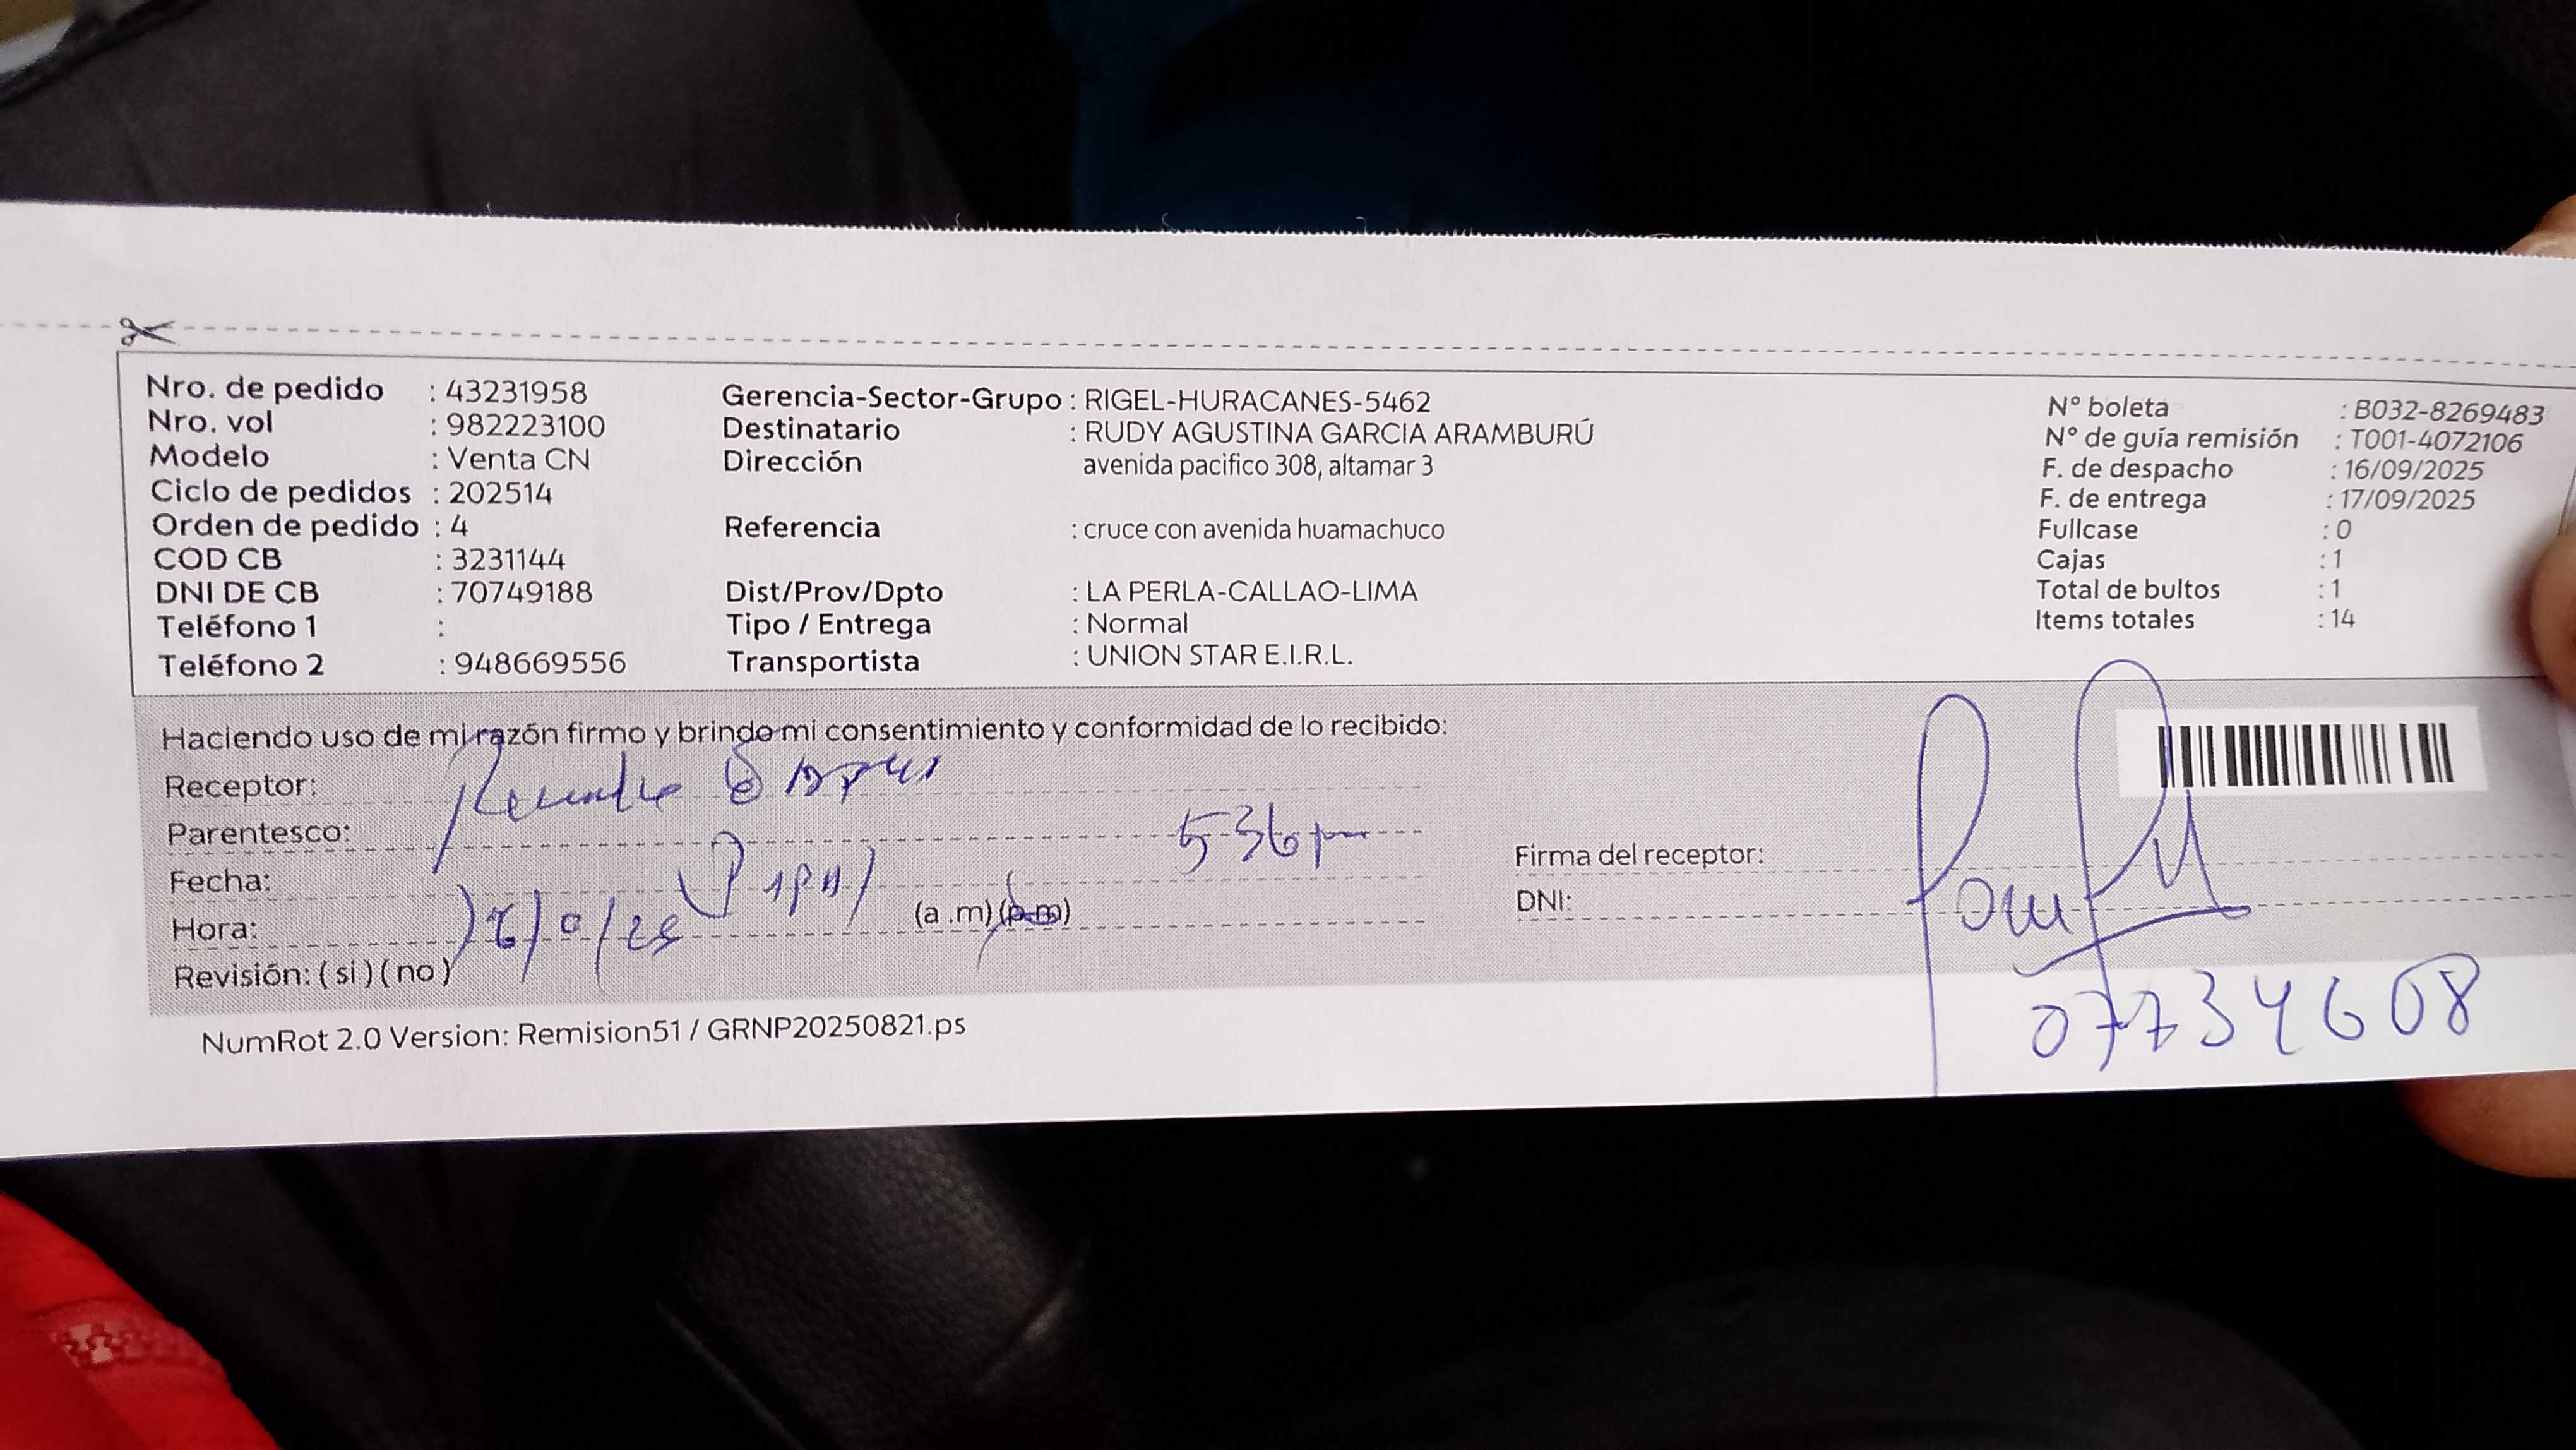 Nro. de pedido : 43231958
Nro. vol : 982223100
Modelo : Venta CN
Ciclo de pedidos : 202514
Orden de pedido : 4
COD CB : 3231144
DNI DE CB : 70749188
Teléfono 1 :
Teléfono 2 : 948669556
Gerencia-Sector-Grupo : RIGEL-HURACANES-5462
Destinatario : RUDY AGUSTINA GARCIA ARAMBURÚ
Dirección avenida pacifico 308, altamar 3
Referencia : cruce con avenida huamachuco
Dist/Prov/Dpto : LA PERLA-CALLAO-LIMA
Tipo / Entrega : Normal
Transportista : UNION STAR E.I.R.L.
N° boleta : B032-8269483
N° de guía remisión : T001-4072106
F. de despacho : 16/09/2025
F. de entrega : 17/09/2025
Fullcase : 0
Cajas : 1
Total de bultos : 1
Items totales : 14
Haciendo uso de mi razón firmo y brindo mi consentimiento y conformidad de lo recibido:
Receptor:
Parentesco: 5-36 pm
Fecha: (Papá)
Hora: (a .m) (p.m)
Revisión: ( si ) ( no )
Firma del receptor:
DNI:
07734608
NumRot 2.0 Version: Remision51 / GRNP20250821.ps